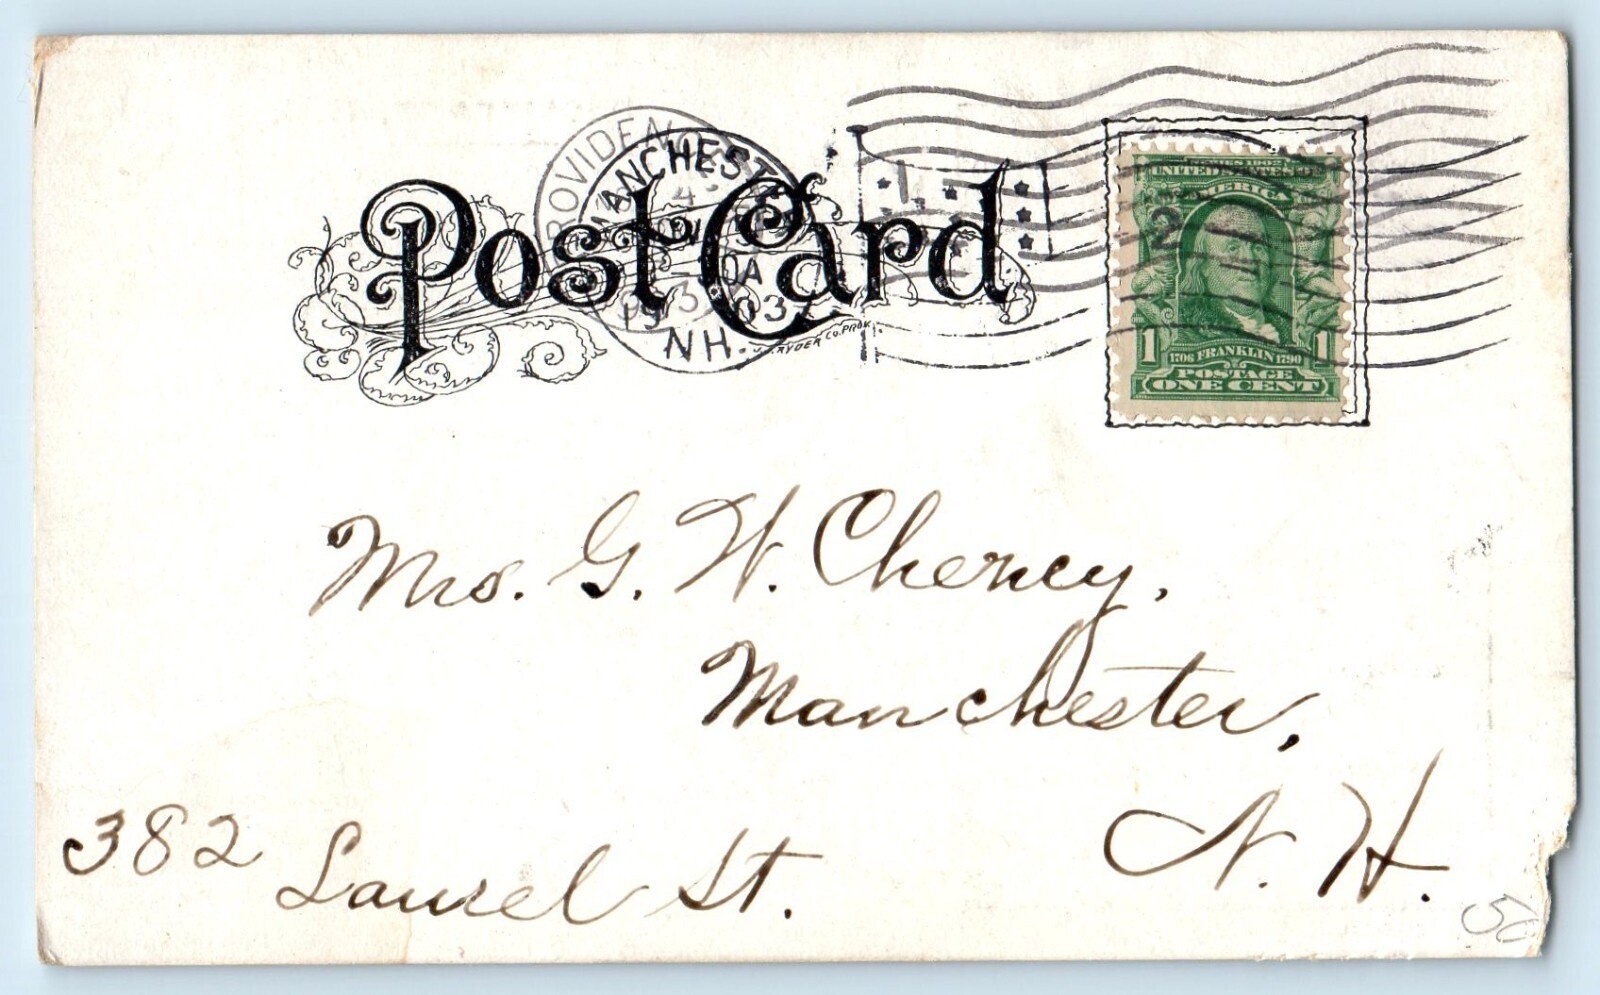 PROVIDENCE
MANCHESTER
Post Card
1903
N.H.
J. RYDER CO. PROV.
SERIES 1902
UNITED STATES OF
AMERICA
2
1 1706 FRANKLIN 1790 1
POSTAGE
ONE CENT
Mrs. G. W. Cheney,
Manchester,
N. H.
382
Laurel St.
50